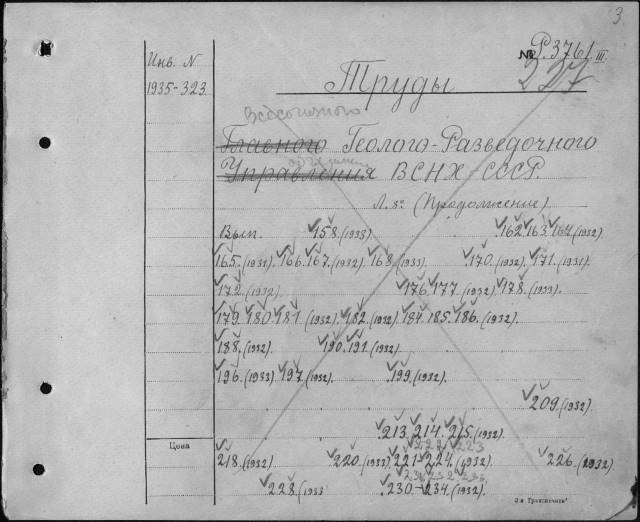 3
№ Р.3761 III
237
Инв. N
1935-323
Труды
Всесоюзного
Главного Геолого-Разведочного
объединения
Управления ВСНХ СССР.
Л. 8° (Продолжение)
Вып. 158. (1933) 162. 163. 164. (1932).
165. (1931). 166. 167. (1932). 168. (1933). 170. (1932). 171. (1931).
172. (1932). 176. 177. (1932). 178. (1933).
179. 180. 181. (1932). 182. (1932). 184. 185. 186. (1932).
188. (1932). 190. 191. (1932).
196. (1933). 197. (1932). 199. (1932).
209. (1932).
213. 214. 215. (1932).
222 223
Цена
218. (1932). 220. (1933). 221-224. (1932). 226. (1932).
231 232 233
228. (1933 230.-234. (1932).